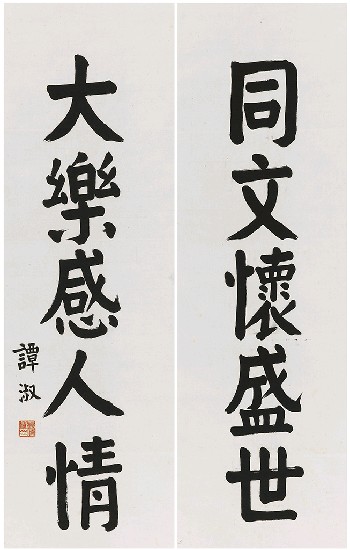 同文懷盛世
大樂感人情
譚淑